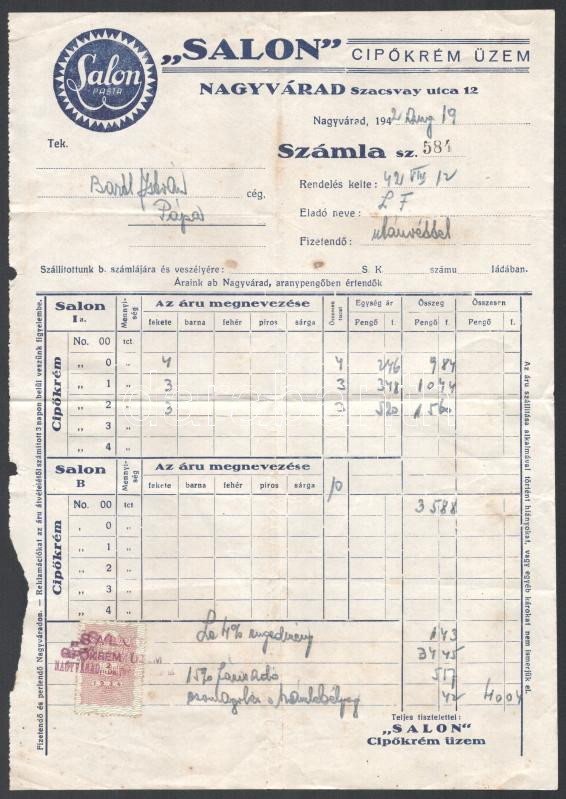 Salon
PASTA
„SALON” CIPŐKRÉM ÜZEM
NAGYVÁRAD Szacsvay utca 12
Nagyvárad, 1942 Aug 19
Tek.
Számla sz. 584
István cég,
Pápa
Rendelés kelte: 42 VIII 12
Eladó neve: L F
Fizetendő: utánvéttel
Szállítottunk b. számlájára és veszélyére: S. K. számu ládában.
Áraink ab Nagyvárad, aranypengőben értendők
Salon Ia. Mennyiség Az áru megnevezése Összesen tucat Egység ár Összeg Összesen
fekete barna fehér piros sárga Pengő f. Pengő f. Pengő f.
Cipőkrém
No. 00 tct
„ 0 „ 4 4 246 984
„ 1 „ 3 3 348 1044
„ 2 „ 3 3 520 1560
„ 3 „
„ 4 „
Salon B Mennyiség Az áru megnevezése 10
fekete barna fehér piros sárga
Cipőkrém
No. 00 tct 3588
„ 0 „
„ 1 „
„ 2 „
„ 3 „
„ 4 „
Le 4% engedmény 143
3445
15% 517
42 4004
„SALON”
CIPŐKRÉM ÜZEM
NAGYVÁRAD
Teljes tisztelettel:
„SALON”
Cipőkrém üzem
Fizetendő és perlendő Nagyváradon. — Reklamációkat az áru átvételétől számított 3 napon belül veszünk figyelembe.
Az áru szállítása alkalmával történt hiányokat, vagy egyéb károkat nem ismerjük el.